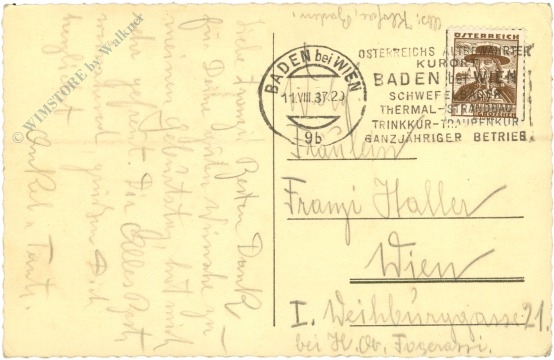 Abs: Haller, Baden,
ÖSTERREICH
BADEN bei WIEN
11.VIII.37.20
9b
ÖSTERREICHS ALTBEWÄHRTER
KURORT
BADEN bei WIEN
SCHWEFELBÄDER
THERMAL-STRANDBAD
TRINKKUR-TRAUBENKUR
GANZJÄHRIGER BETRIEB
Fräulein
Franzi Haller
Wien
I. Weihburggasse 21.
bei H. Dr.
Liebe Franzi Besten Dank
für Deine Wünsche zu
meinem Geburtstag hat mich
sehr gefreut. Dir Alles Beste
grüßen Dich
herzlichst
Onkel u. Tante.
© WIMSTORE by Walkner